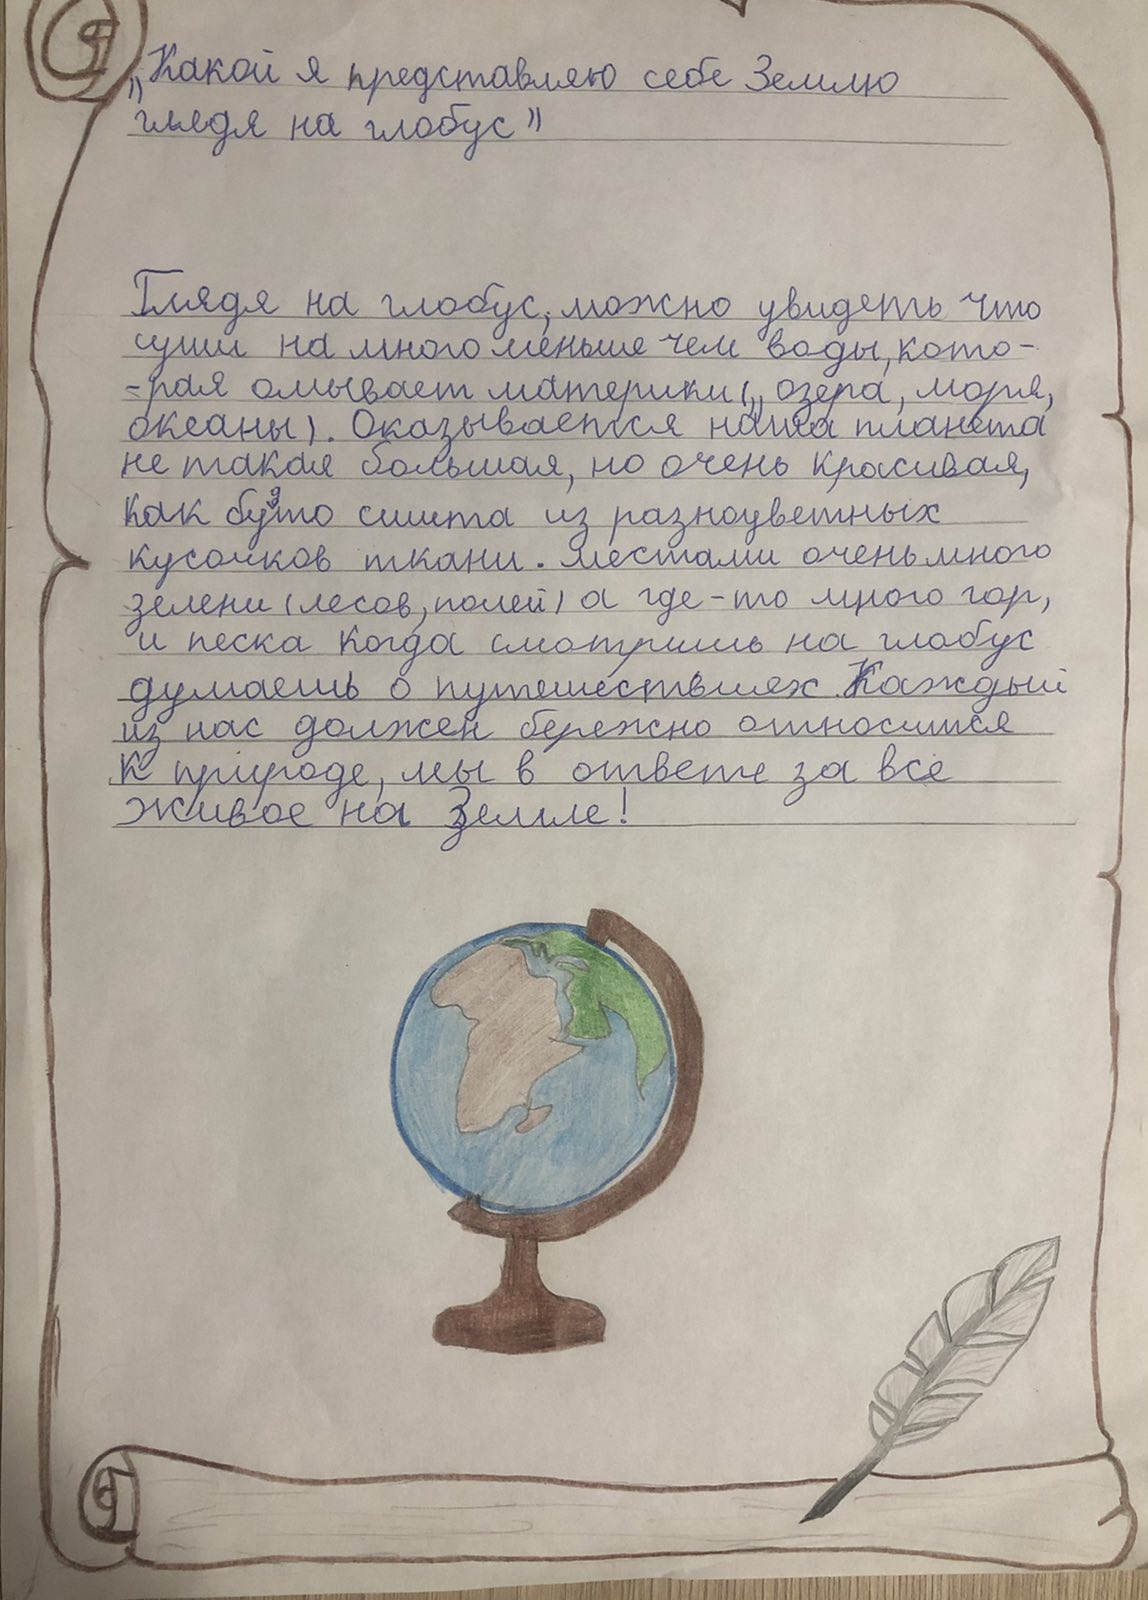 „Какой я представляю себе Землю
глядя на глобус"
Глядя на глобус, можно увидеть что
суши на много меньше чем воды, кото-
-рая омывает материки („ озера, моря,
океаны). Оказывается наша планета
не такая большая, но очень красивая,
как будто сшита из разноцветных
кусочков ткани. местами очень много
зелени (лесов, полей) а где-то много гор,
и песка когда смотришь на глобус
думаешь о путешествиях. Каждый
из нас должен бережно относится
к природе, мы в ответе за все
живое на Земле!